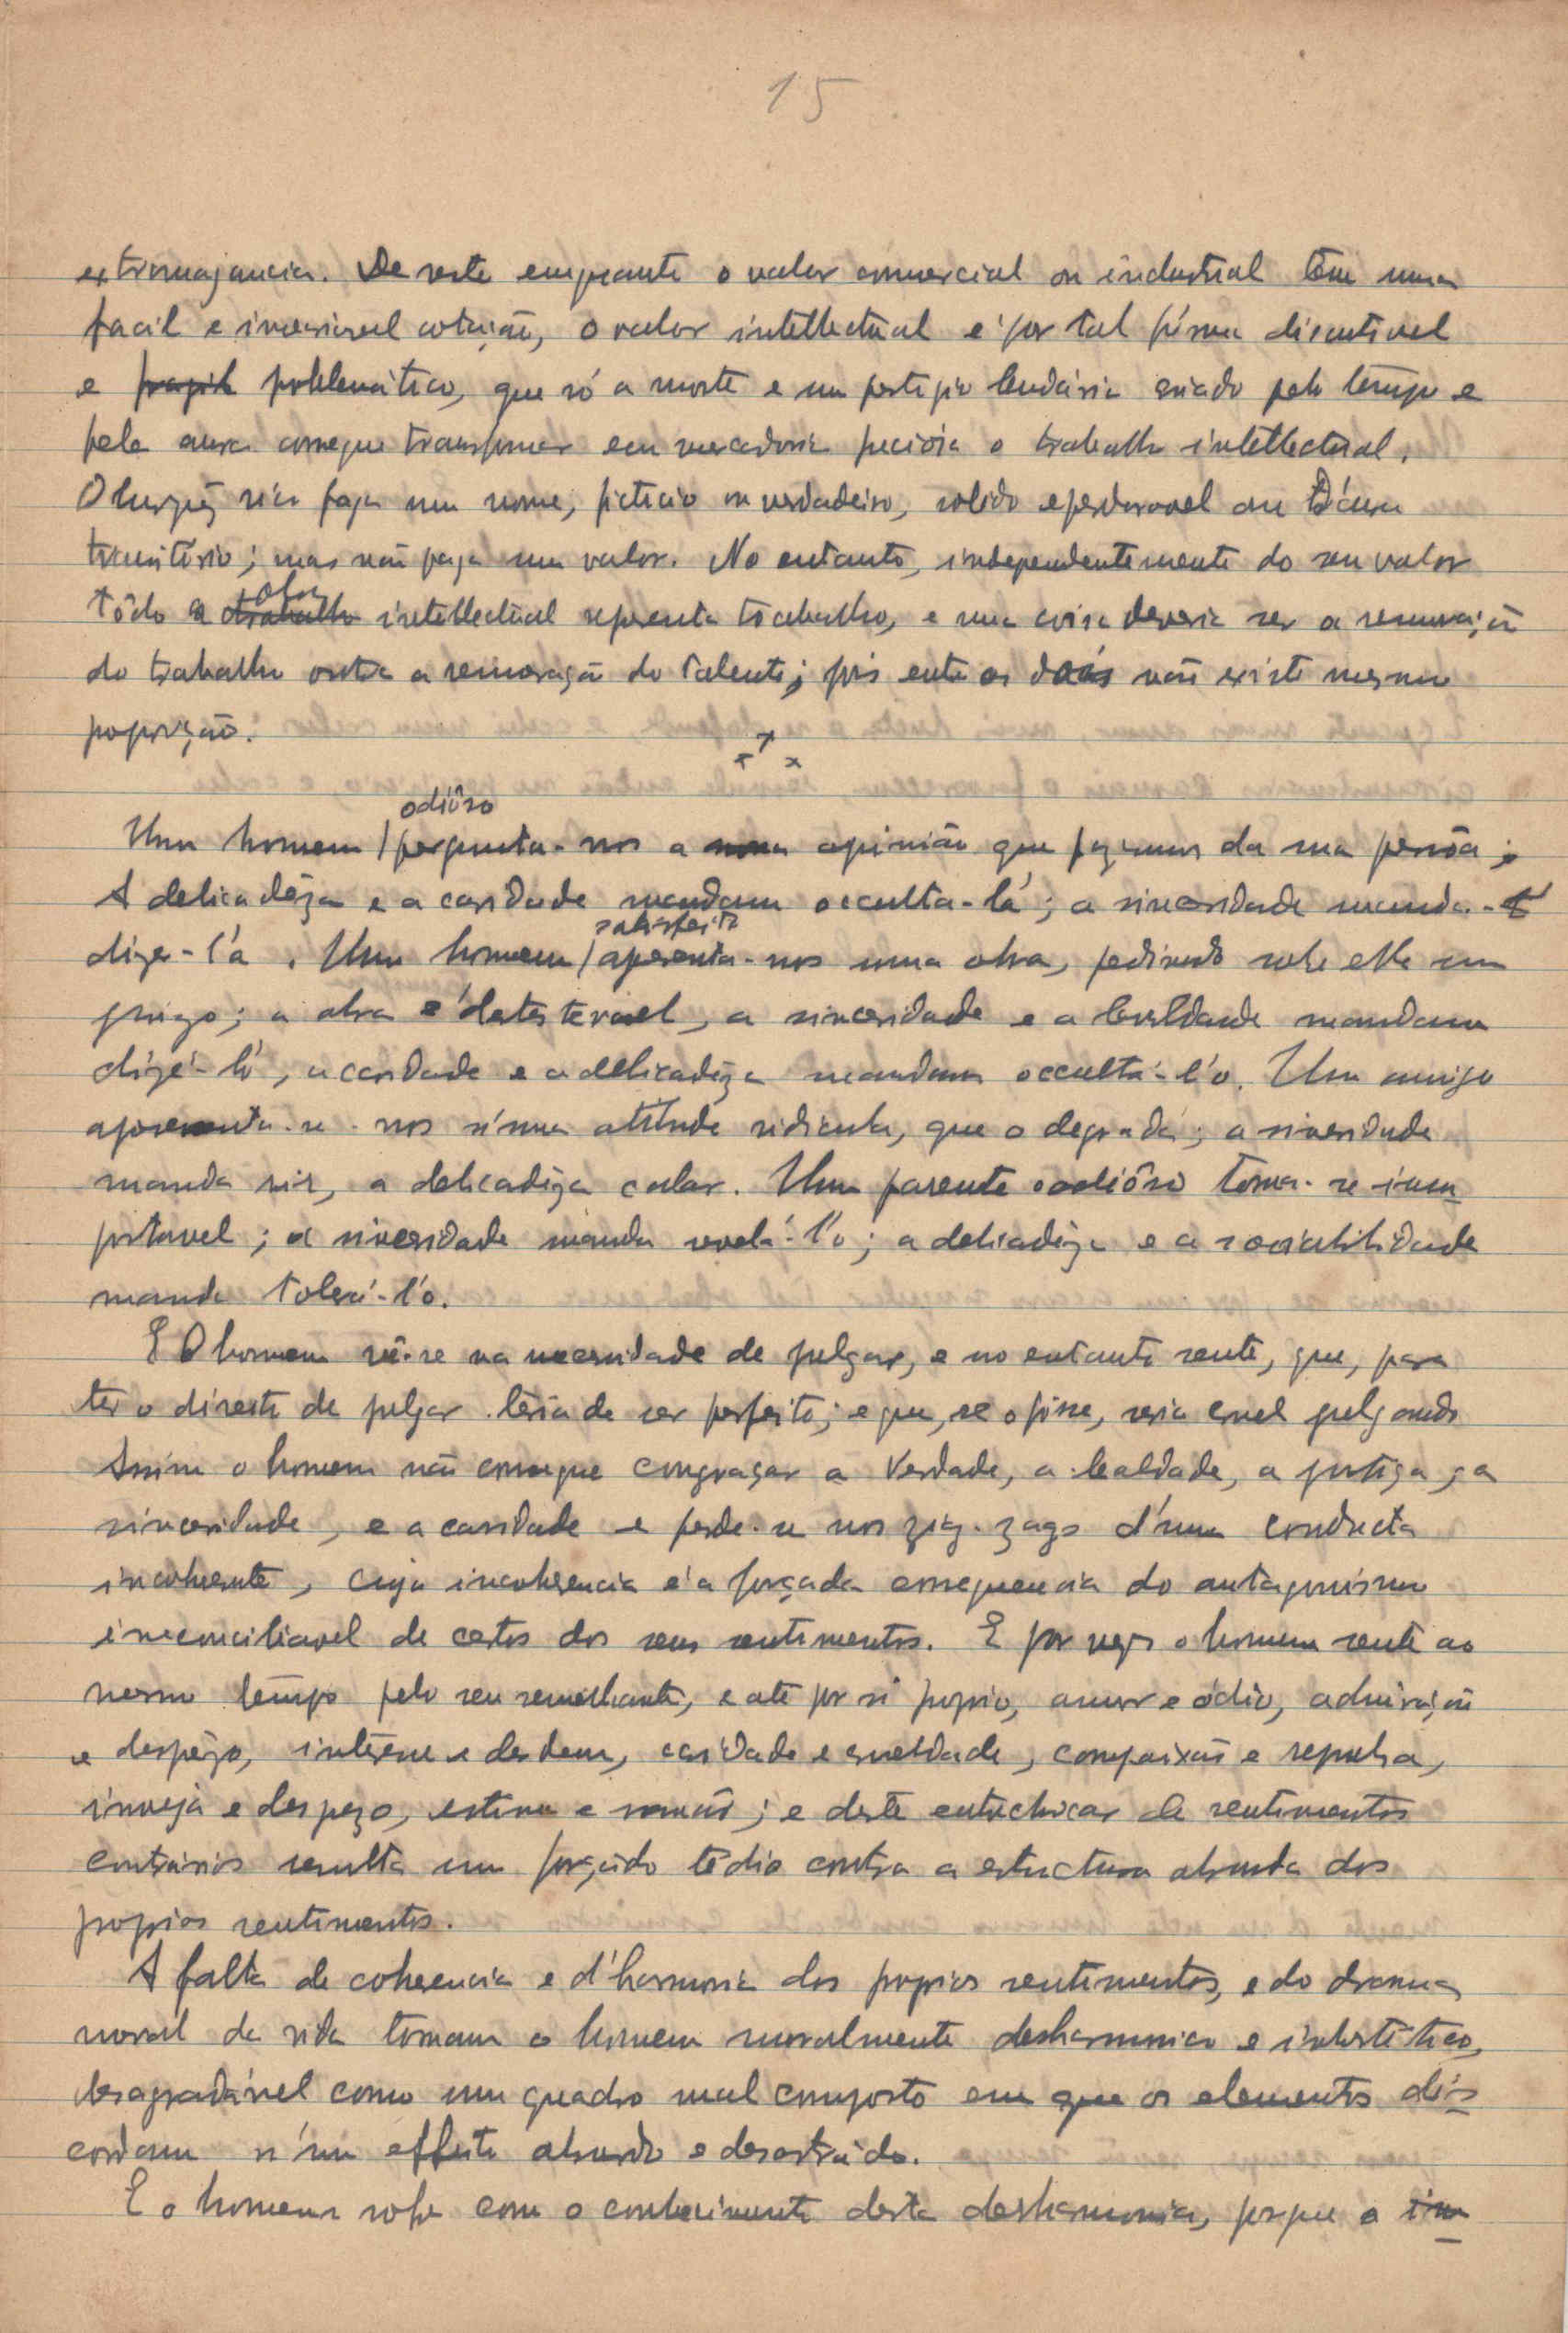 15
extravagancia. De resto emquanto o valor commercial ou industrial têm uma
facil e invariavel cotação, o valor intellectual é por tal fórma discutivel
e fragil problemático, que só a morte e um prestigio lendário criado pelo tempo e
pela consegue transformar em mercadoria preciosa o trabalho intellectual.
O burguês rico paga um nome, ficticio ou verdadeiro, solido e perdoravel ou
transitório; mas não paga um valor. No entanto, independentemente do seu valor
obra
tôdo a trabalho intellectual representa trabalho, e uma coisa deveria ser a remuneração
do trabalho outra a remuneração do talento; pois entre os dois não existe mesmo
proporção.
x x x
odiôso
Um homem / pergunta-nos a nossa opinião que fazemos da sua pessôa;
A delicadêza e a caridade mandam occulta-la; a sinceridade manda-
satisfeito
dizer-l'a. Um homem / apresenta-nos uma obra, pedindo sobre ella um
juizo; a obra é detestavel, a sinceridade e a lealdade mandam
dizê-lo, a caridade e a delicadêza mandam occultá-l'o. Um amigo
apresenta-se-nos n'uma atitude ridicula, que o degrada; a sinceridade
manda rir, a delicadêza calar. Um parente odiôso torna-se insu-
portavel; a sinceridade manda revelá-l'o; a delicadêza e a sociabilidade
manda tolerá-l'o.
E O homem vê-se na necessidade de julgar, e no entanto sente, que, para
ter o direito de julgar teria de ser perfeito; e que, se o fosse, seria cruel julgando
Assim o homem não consegue congraçar a Verdade, a lealdade, a justiça, a
sinceridade, e a caridade e perde-se nos zig-zags d'uma conducta
incoherente, cuja incoherencia é a forçada consequencia do antagonismo
inreconciliavel de certos dos seus sentimentos. E por vezes o homem sente ao
mesmo tempo pelo seu semelhante, e até por si proprio, amor e ódio, admiração
e desprêzo, interesse e desdem, caridade e crueldade, compaixão e repulsa,
inveja e desprezo, estima e ; e deste entrechocar de sentimentos
contrários resulta um forçado tédio contra a estructura absurda dos
proprios sentimentos.
A falta de coherencia e d'harmonia dos proprios sentimentos, e do drama
moral da vida tornam o homem moralmente desharmonico e inestético,
desagradável como um quadro mal composto em que os elementos dis-
cordam n'um effeito absurdo e desastrado.
E o homem sofre com o conhecimento desta desharmonia, porque o